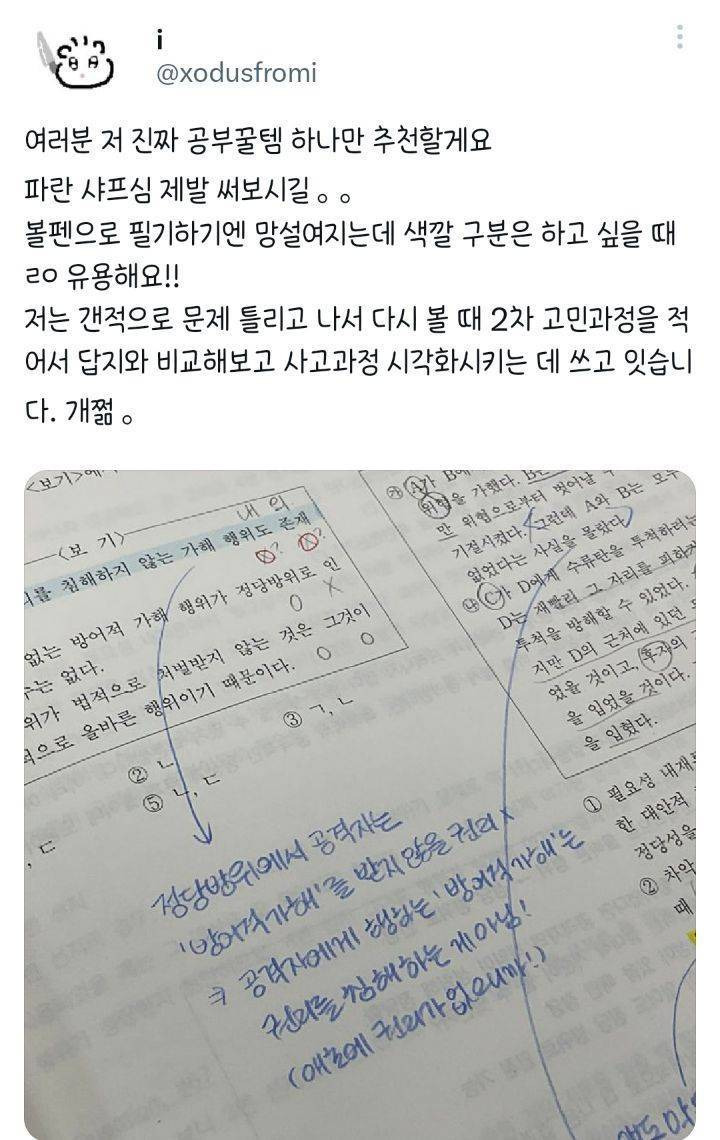 i
@xodusfromi
여러분 저 진짜 공부꿀템 하나만 추천할게요
파란 샤프심 제발 써보시길 。。
볼펜으로 필기하기엔 망설여지는데 색깔 구분은 하고 싶을 때
ㄹㅇ 유용해요!!
저는 갠적으로 문제 틀리고 나서 다시 볼 때 2차 고민과정을 적
어서 답지와 비교해보고 사고과정 시각화시키는 데 쓰고 잇습니
다. 개쩖 。
<보기>에
<보 기>
내 의
를 침해하지 않는 가해 행위도 존재
없는 방어적 가해 행위가 정당방위로 인
는 없다.
위가 법적으로 처벌받지 않는 것은 그것이
적으로 올바른 행위이기 때문이다.
② ㄴ
③ ㄱ, ㄴ
⑤ ㄴ, ㄷ
, ㄷ
정당방위에서 공격자는
'방어적 가해'를 받지 않을 권리 x
공격자에게 행하는 '방어적 가해'는
권리를 침해하는 게 아님!
(애초에 권리가 없으니까!)
㉮ A가 B에
위협을 가했다. B는
만 위협으로부터 벗어날 수
기절시켰다. 그런데 A와 B는 모두
없었다는 사실을 몰랐다.
㉯ C가 D에게 수류탄을 투척하려는
D는 재빨리 그 자리를 피하
투척을 방해할 수 있었다.
지만 D의 근처에 있던
었을 것이고, 후자의
을 입었을 것이다.
을 입혔다.
① 필요성 내재
한 대안적
정당성을
② 차악
때